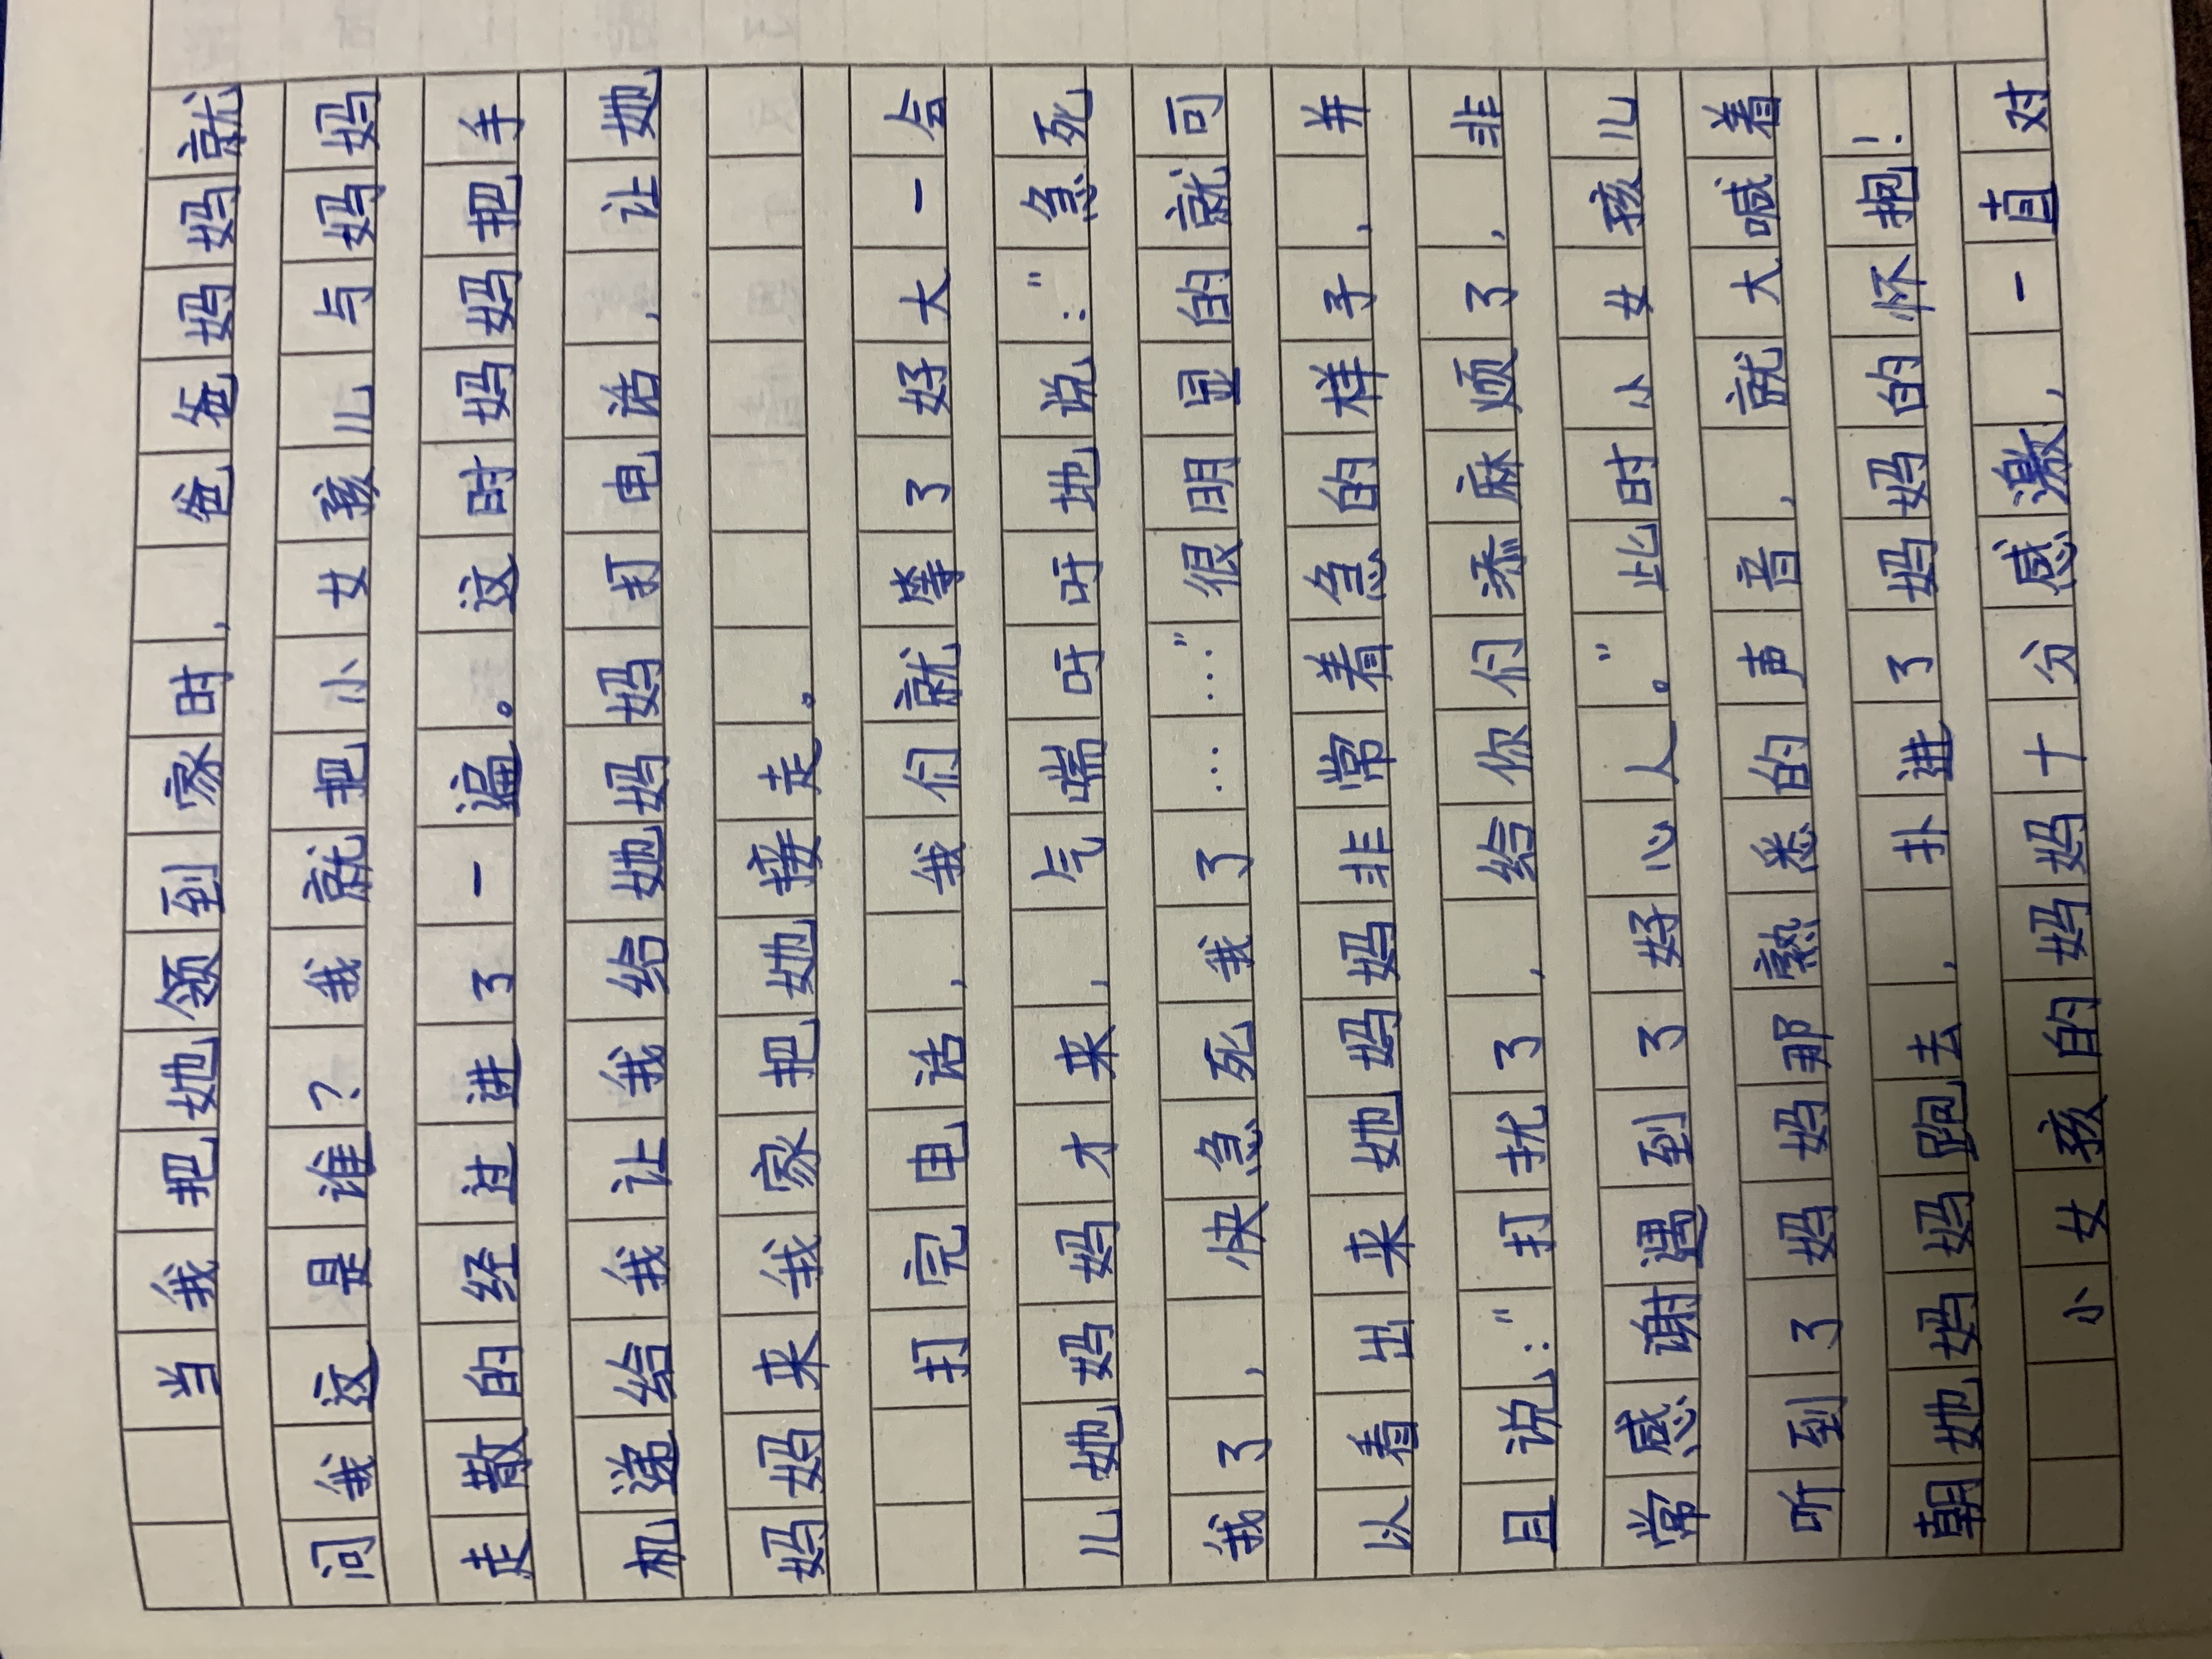 当我把她领到家时，爸爸妈妈就
问我这是谁？我就把小女孩儿与妈妈
走散的经过进了一遍。这时妈妈把手
机递给我让我给她妈妈打电话，让她
妈妈来我家把她接走。
打完电话，我们就等了好大一会
儿她妈妈才来，气喘吁吁地说：“急死
我了，快急死我了……”很明显的就可
以看出来她妈妈非常着急的样子，并
且说：“打扰了，给你们添麻烦了，非
常感谢遇到了好心人。”此时小女孩儿
听到了妈妈那熟悉的声音，就大喊着
朝她妈妈跑去，扑进了妈妈的怀抱！
小女孩的妈妈十分感激，一直对